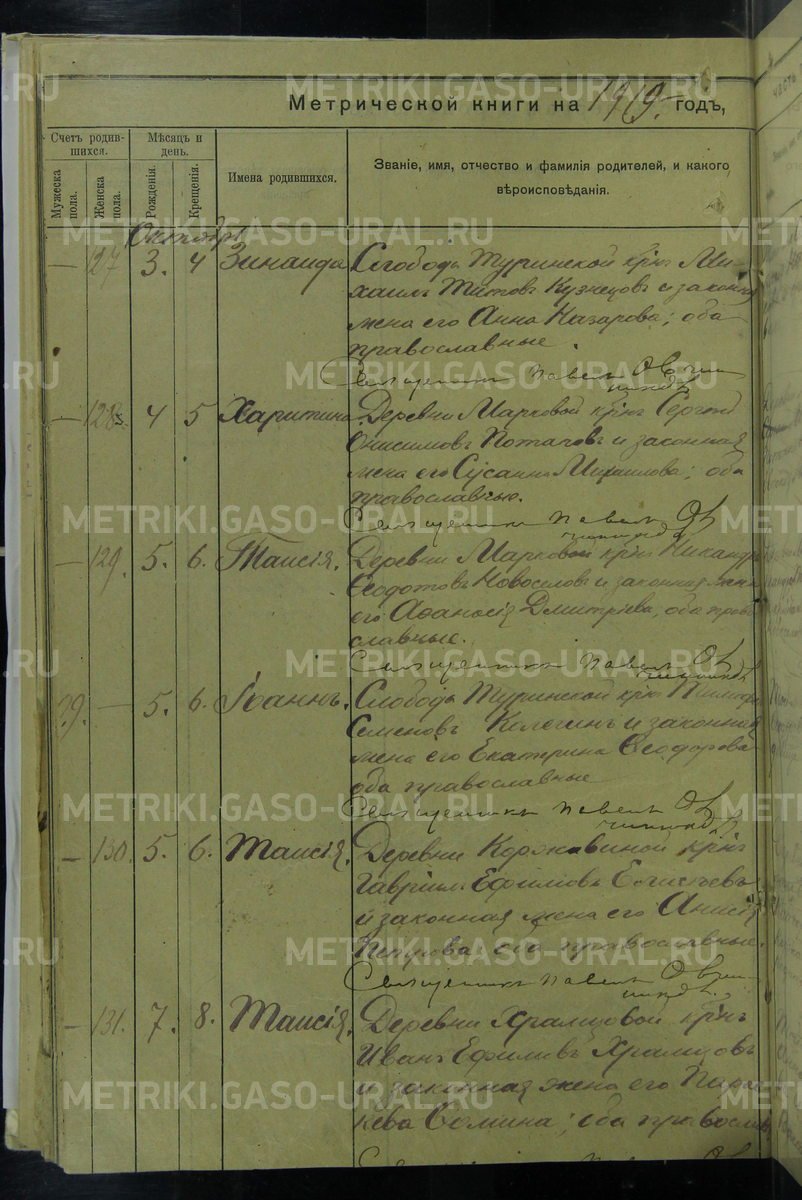 Метрической книги на 1919 годъ,
Счетъ родив-
шихся.
Мѣсяцъ и
день.
Мужеска
пола.
Женска
пола.
Рожденія.
Крещенія.
Имена родившихся.
Званіе, имя, отчество и фамилія родителей, и какого
вѣроисповѣданія.
Октябрь
— 127 3. 4 Зинаида Слободы Туринской крн Ми-
хаилъ Титовъ Кузнецовъ и законная
жена его Анна Назарова; оба
православные.
Священникъ Павелъ Овчин
никовъ
— 128 4 5 Харитина Деревни Марковой крнъ Сергей
Онисимовъ Потаповъ и законная
жена его Сусанна Михаилова; оба
православные.
Священникъ Павелъ Ов
чинниковъ
— 129. 5. 6. Таисія. Деревни Марковой крнъ Никандръ
Ѳеодотовъ Новоселовъ и законная жена
его Аѳанасія Дмитріева, оба право
славные.
Священникъ Павелъ Ов
чинниковъ
— 5. 6. Іоаннъ. Слободы Туринской крн
Семеновъ и законная
жена его Екатерина Ѳеодорова
оба православные
Священникъ Павелъ Ов
чинниковъ
— 130. 5. 6. Таисія. Деревни Коржавиной крнъ
Гавріилъ Ефимовъ Елисѣевъ
и законная жена его Анисія
Петрова оба православные.
Священникъ Павелъ Овчин
никовъ.
— 131. 7. 8. Таисія. Деревни Храмцовой крнъ
Иванъ Ефимовъ Храмцовъ
и законная жена его Парас
кева Ѳомина; оба православ
Священникъ Павелъ Ов
METRIKI.GASO-URAL.RU